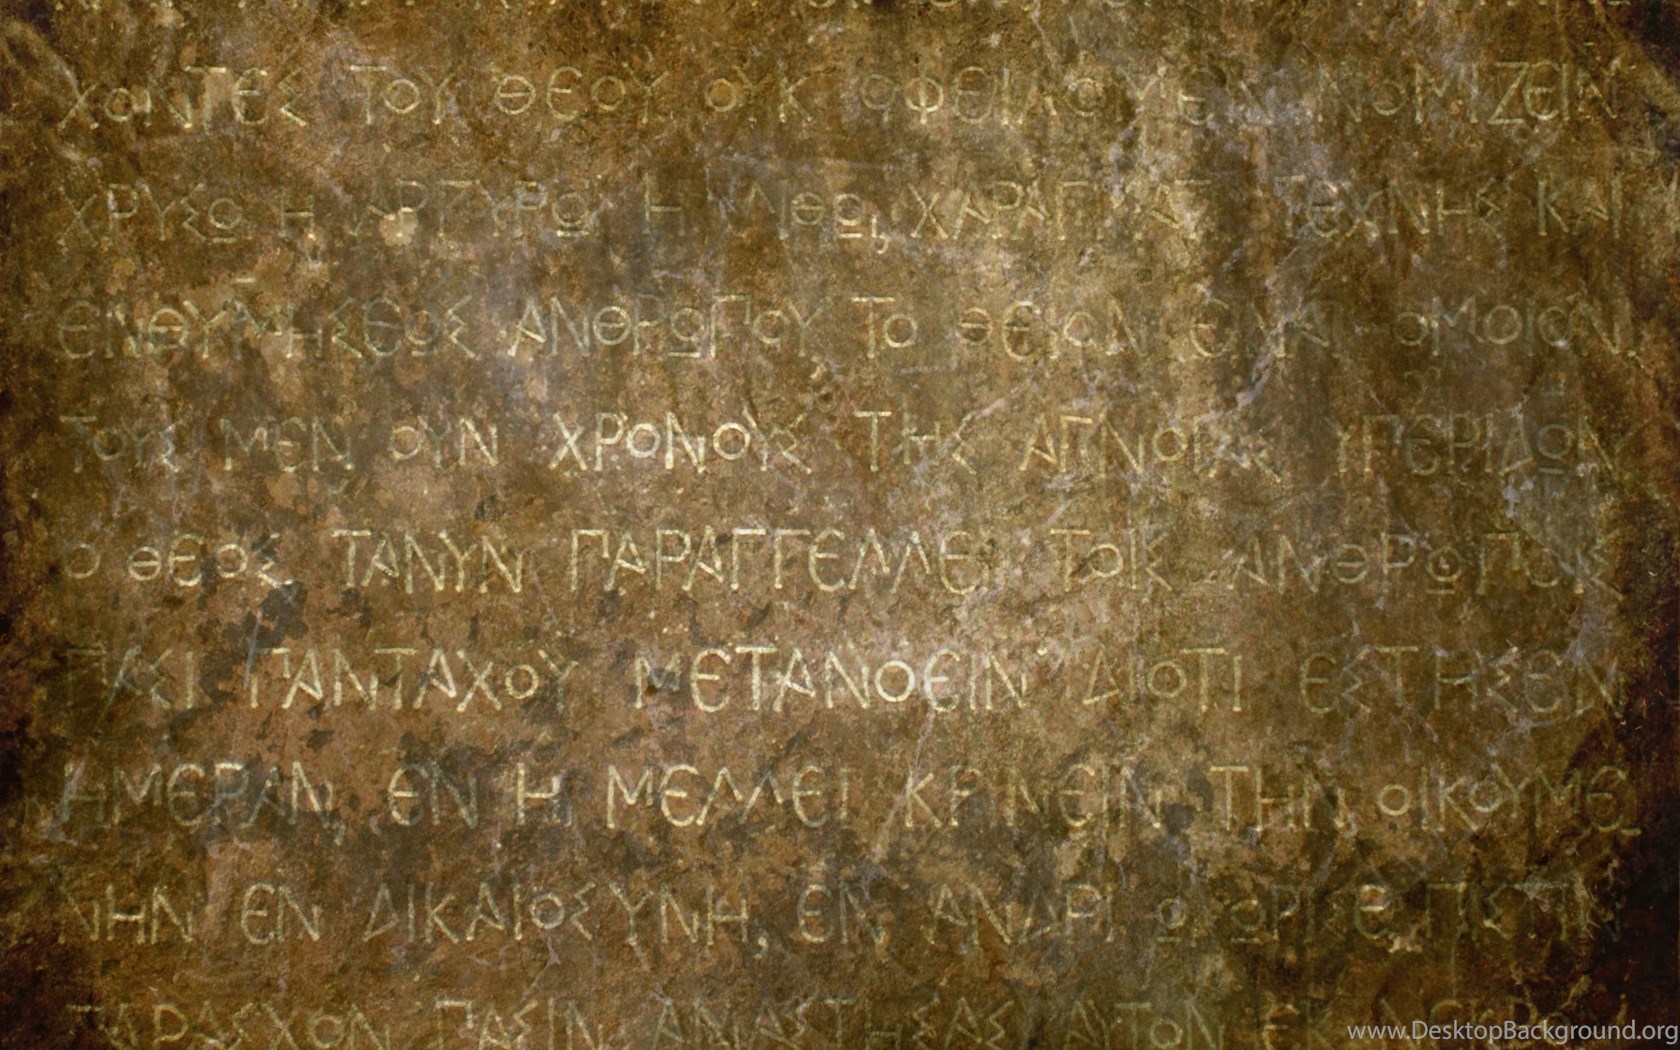 ΧΟΝΤΕΣ ΤΟΥ ΘΕΟΥ ΟΥΚ ΟΦΕΙΛΟΥΜΕΝ ΝΟΜΙΖΕΙΝ
ΧΡΥΣΩ Η ΑΡΓΥΡΩ Η ΛΙΘΩ, ΧΑΡΑΓΜΑΤΙ ΤΕΧΝΗΣ ΚΑΙ
ΕΝΘΥΜΗΣΕΩΣ ΑΝΘΡΩΠΟΥ ΤΟ ΘΕΙΟΝ ΕΙΝΑΙ ΟΜΟΙΟΝ.
ΤΟΥΣ ΜΕΝ ΟΥΝ ΧΡΟΝΟΥΣ ΤΗΣ ΑΓΝΟΙΑΣ ΥΠΕΡΙΔΩΝ
Ο ΘΕΟΣ ΤΑΝΥΝ ΠΑΡΑΓΓΕΛΛΕΙ ΤΟΙΣ ΑΝΘΡΩΠΟΙΣ
ΠΑΣΙ ΠΑΝΤΑΧΟΥ ΜΕΤΑΝΟΕΙΝ ΔΙΟΤΙ ΕΣΤΗΣΕΝ
ΗΜΕΡΑΝ, ΕΝ Η ΜΕΛΛΕΙ ΚΡΙΝΕΙΝ ΤΗΝ ΟΙΚΟΥΜΕ
ΝΗΝ ΕΝ ΔΙΚΑΙΟΣΥΝΗ, ΕΝ ΑΝΔΡΙ Ω ΩΡΙΣΕ ΠΙΣΤΙΝ
ΠΑΡΑΣΧΩΝ ΠΑΣΙΝ ΑΝΑΣΤΗΣΑΣ ΑΥΤΟΝ ΕΚ ΝΕΚΡΩΝ
www.DesktopBackground.org